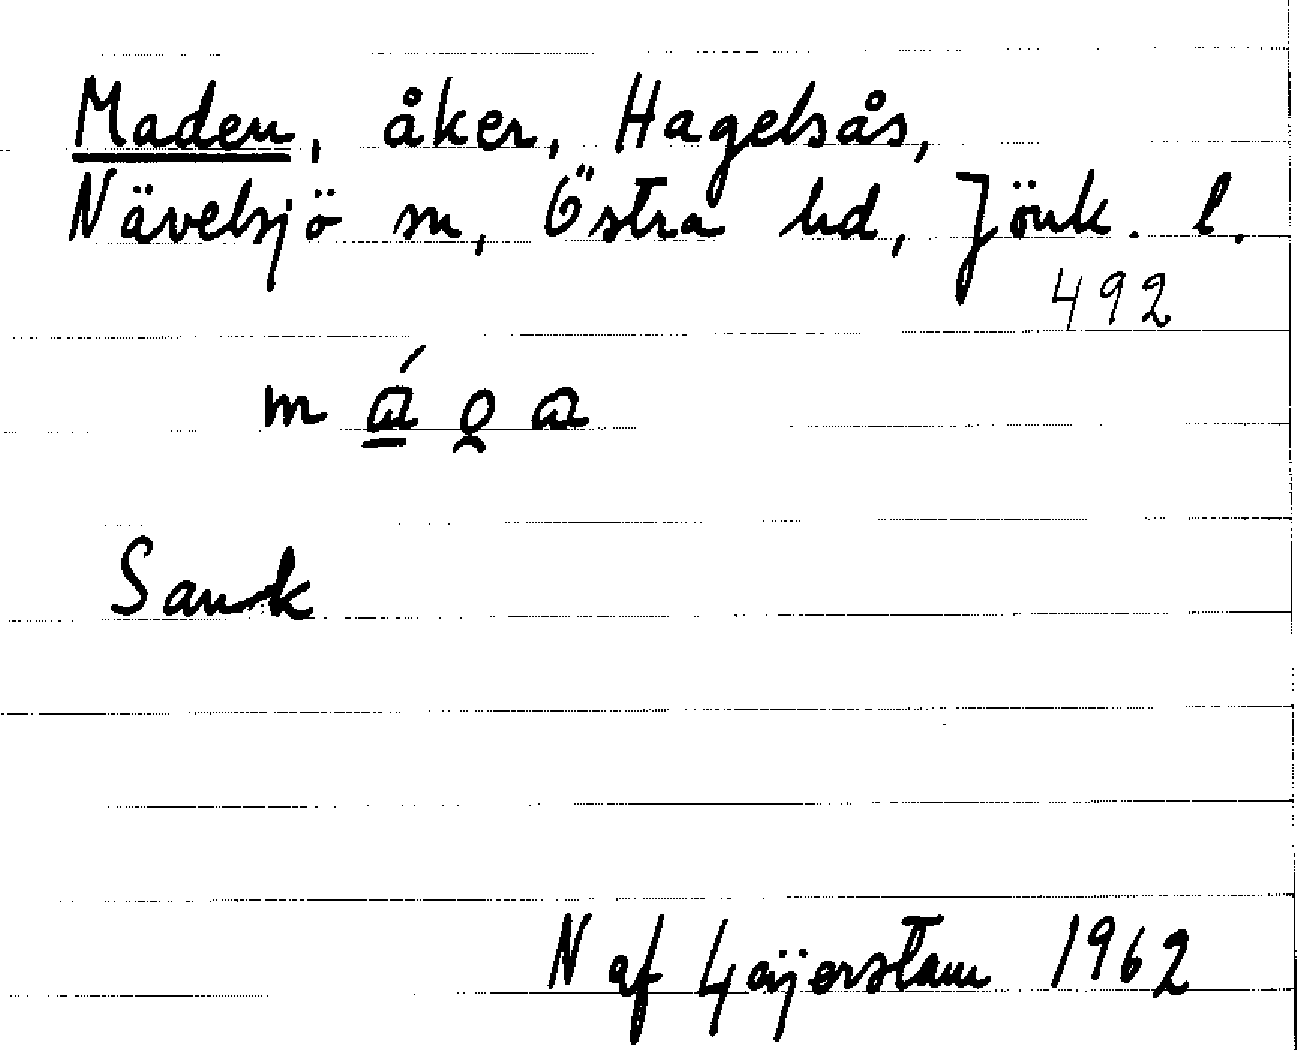 Maden, åker, Hagelsås,
Nävelsjö sn, Östra hd, Jönk. l.
492
Sank
N af Geijerstam 1962